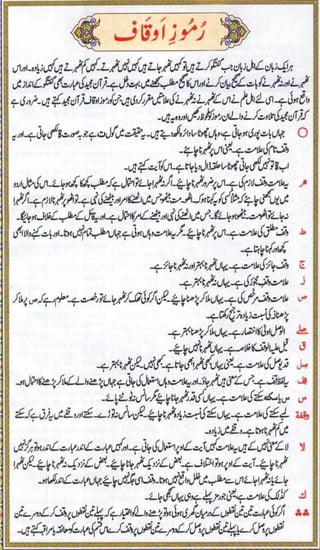 رُموزِ اَوقاف
ہر ایک زبان کے اہل زبان جب گفتگو کرتے ہیں تو کہیں ٹھہر جاتے ہیں کہیں نہیں ٹھہرتے۔ کہیں کم ٹھہرتے ہیں کہیں زیادہ۔ اور اس
ٹھہرنے اور نہ ٹھہرنے کو بات کے صحیح بیان کرنے اور اس کا صحیح مطلب سمجھنے میں بہت دخل ہے۔ قرآن مجید کی عبارت بھی گفتگو کے انداز میں
واقع ہوئی ہے۔ اسی لئے اہل علم نے اس کے ٹھہرنے نہ ٹھہرنے کی علامتیں مقرر کر دی ہیں جن کو رموز اوقاف قرآن مجید کہتے ہیں۔ ضروری ہے
کہ قرآن مجید کی تلاوت کرنے والے ان رموز کو
○ جہاں بات پوری ہو جاتی ہے وہاں چھوٹا سا دائرہ لکھ دیتے ہیں۔ یہ حقیقت میں گول ت ہے جو بصورت ۃ لکھی جاتی ہے۔ اور یہ
وقف تام کی علامت ہے یعنی اس پر ٹھہرنا چاہئے۔
اب ۃ تو نہیں لکھی جاتی چھوٹا سا حلقہ ڈال دیا جاتا ہے۔ اس کو آیت کہتے ہیں۔
م یہ علامت وقف لازم کی ہے۔ اس پر ضرور ٹھہرنا چاہئے۔ اگر نہ ٹھہرا جائے تو احتمال ہے کہ مطلب کچھ کا کچھ ہو جائے۔ اس کی مثال اردو
میں یوں سمجھنی چاہئے کہ مثلاً کسی کو یہ کہنا ہو کہ اٹھو۔ مت بیٹھو جس میں اٹھنے کا امر اور بیٹھنے کی نہی ہے۔ تو اٹھو پر ٹھہرنا لازم ہے۔ اگر ٹھہرا
نہ جائے تو اٹھو مت بیٹھو ہو جائے گا۔ جس میں اٹھنے کی نہی اور بیٹھنے کے امر کا احتمال ہے۔ اور یہ قائل کے مطلب کے خلاف ہو جائے گا۔
ط وقف مطلق کی علامت ہے۔ اس پر ٹھہرنا چاہئے۔ مگر یہ علامت وہاں ہوتی ہے جہاں مطلب تمام نہیں ہوتا۔ اور بات کہنے والا ابھی
کچھ اور کہنا چاہتا ہے۔
ج وقف جائز کی علامت ہے۔ یہاں ٹھہرنا بہتر اور نہ ٹھہرنا جائز ہے۔
ز علامت وقف مجوز کی ہے۔ یہاں نہ ٹھہرنا بہتر ہے۔
ص علامت وقف مرخص کی ہے۔ یہاں ملا کر پڑھنا چاہئے۔ لیکن اگر کوئی تھک کر ٹھہر جائے تو رخصت ہے۔ معلوم رہے کہ ص پر ملا کر
پڑھنا ز کی نسبت زیادہ ترجیح رکھتا ہے۔
صلے الوصل اولیٰ کا اختصار ہے۔ یہاں ملا کر پڑھنا بہتر ہے۔
ق قیل علیہ الوقف کا خلاصہ ہے۔ یہاں ٹھہرنا نہیں چاہئے۔
صل قد یوصل کی علامت ہے۔ یعنی یہاں کبھی ٹھہرا بھی جاتا ہے۔ کبھی نہیں۔ لیکن ٹھہرنا بہتر ہے۔
قف یہ لفظ قف ہے۔ جس کے معنی ہیں ٹھہر جاؤ۔ اور یہ علامت وہاں استعمال کی جاتی ہے جہاں پڑھنے والے کے ملا کر پڑھنے کا احتمال ہو۔
س سکتہ کی علامت ہے۔ یہاں کسی قدر ٹھہر جانا چاہئے مگر سانس نہ ٹوٹنے پائے۔
وقفۃ لمبے سکتہ کی علامت ہے۔ یہاں سکتہ کی نسبت زیادہ ٹھہرنا چاہئے۔ لیکن سانس نہ توڑے۔ سکتے اور وقفے میں یہ فرق ہے کہ سکتے
میں کم ٹھہرنا ہوتا ہے۔ وقفے میں زیادہ۔
لا لا کے معنی نہیں کے ہیں۔ یہ علامت کہیں آیت کے اوپر استعمال کی جاتی ہے۔ اور کہیں عبارت کے اندر۔ عبارت کے اندر ہو تو ہرگز نہیں
ٹھہرنا چاہئے۔ آیت کے اوپر ہو تو اختلاف ہے۔ بعض کے نزدیک ٹھہر جانا چاہئے بعض کے نزدیک نہ ٹھہرنا چاہئے۔ لیکن ٹھہرا
جائے یا نہ ٹھہرا جائے اس سے مطلب میں خلل واقع نہیں ہوتا۔ وقف اسی جگہ نہیں چاہئے جہاں عبارت کے اندر لکھا ہو۔
ک کذلک کی علامت ہے۔ یعنی جو رمز پہلے ہے وہی یہاں سمجھی جائے۔